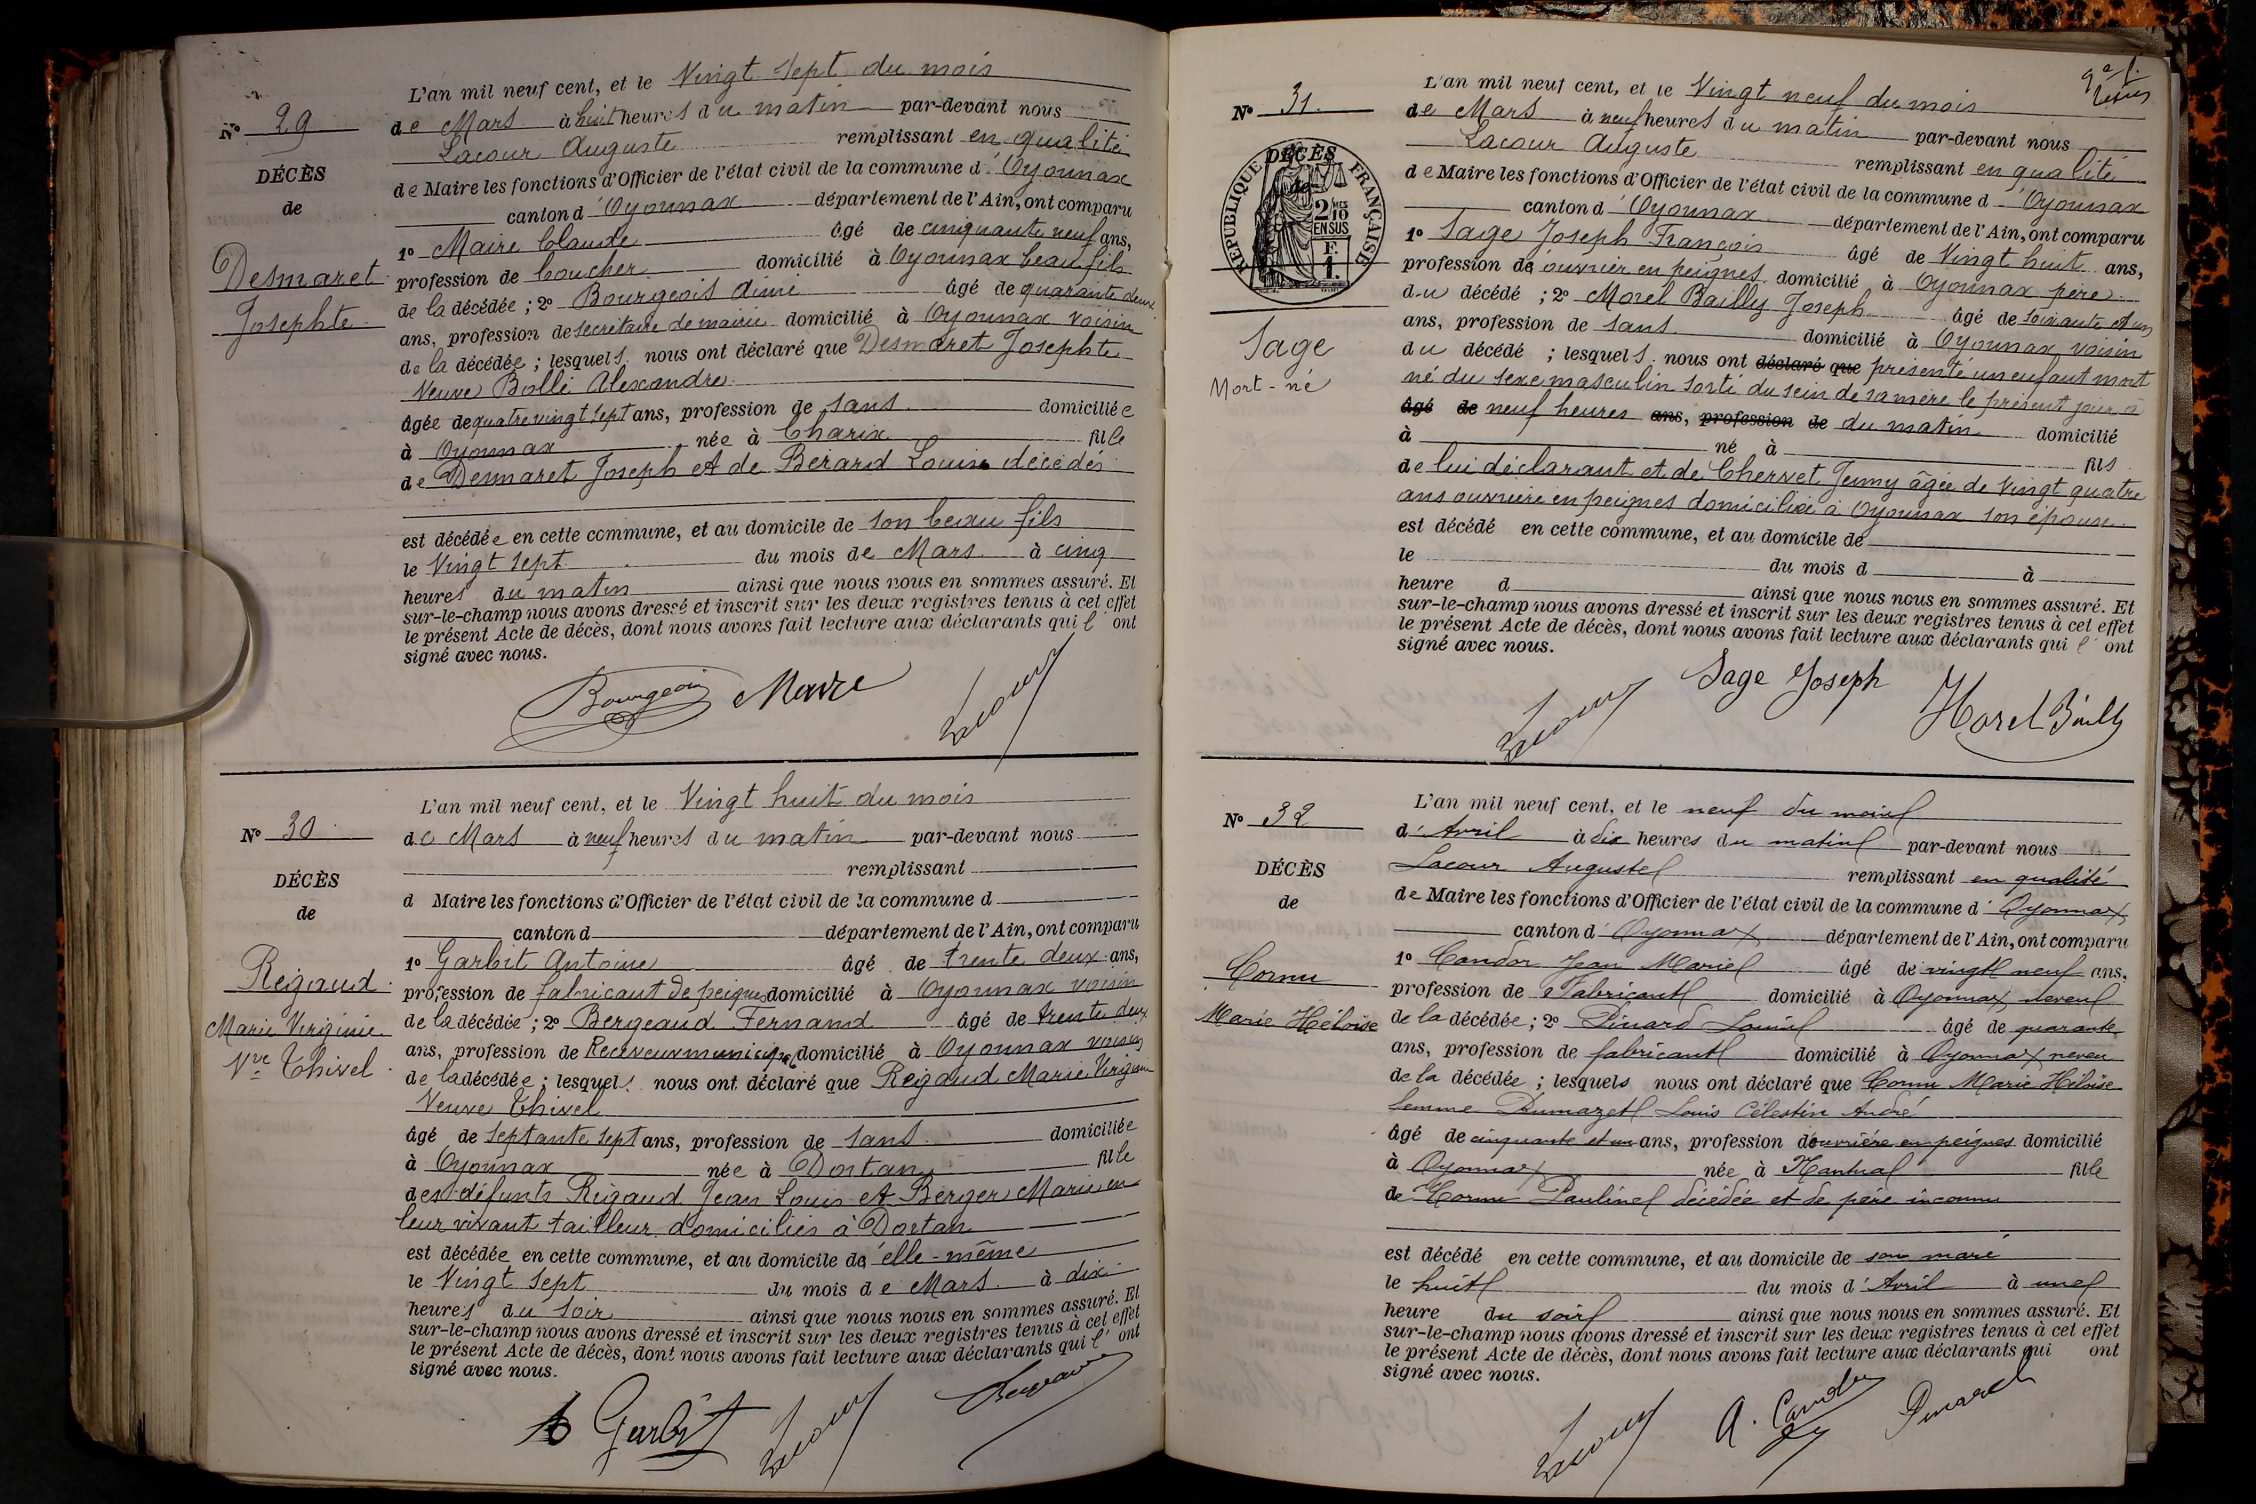 L'an mil neuf cent, et le Vingt sept du mois
N° 29
de Mars à huit heures du matin par-devant nous
Lacour Auguste remplissant en qualité
DÉCÈS
de Maire les fonctions d'Officier de l'état civil de la commune d' Oyonnax
de
canton d' Oyonnax département de l'Ain, ont comparu
1° Maire Claude âgé de cinquante neuf ans,
Desmaret
profession de boucher domicilié à Oyonnax beau fils
de la décédée ; 2° Bourgeois Aimé âgé de quarante deux
Josephte
ans, profession de secrétaire de mairie domicilié à Oyonnax voisin
de la décédée ; lesquels nous ont déclaré que Desmaret Josephte
Veuve Bollé Alexandre
âgée de quatre vingt sept ans, profession de sans domiciliée
à Oyonnax née à Charix fille
de Desmaret Joseph et de Bérard Louise décédés
est décédée en cette commune, et au domicile de son beau fils
le Vingt sept du mois de Mars à cinq
heures du matin ainsi que nous nous en sommes assuré. Et
sur-le-champ nous avons dressé et inscrit sur les deux registres tenus à cet effet
le présent Acte de décès, dont nous avons fait lecture aux déclarants qui l' ont
signé avec nous.
Bourgeois Maire Lacour
L'an mil neuf cent, et le Vingt huit du mois
N° 30
de Mars à neuf heures du matin par-devant nous
remplissant
DÉCÈS
d Maire les fonctions d'Officier de l'état civil de la commune d
de
canton d département de l'Ain, ont comparu
1° Garbit Antoine âgé de trente deux ans,
Regaud
profession de fabricant de peignes domicilié à Oyonnax voisin
Marie Virginie
de la décédée ; 2° Bergeaud Fernand âgé de trente deux
ans, profession de Receveur municipal domicilié à Oyonnax voisin
Vve Thivel
de la décédée ; lesquels nous ont déclaré que Regaud Marie Virginie
Veuve Thivel
âgé de septante sept ans, profession de sans domiciliée
à Oyonnax née à Dortan fille
des défunts Regaud Jean Louis et Berger Marie en
leur vivant tailleur domiciliés à Dortan
est décédée en cette commune, et au domicile de elle-même
le Vingt sept du mois de Mars à dix
heures du soir ainsi que nous nous en sommes assuré. Et
sur-le-champ nous avons dressé et inscrit sur les deux registres tenus à cet effet
le présent Acte de décès, dont nous avons fait lecture aux déclarants qui l' ont
signé avec nous.
Garbit Lacour
L'an mil neuf cent, et le Vingt neuf du mois
N° 31
de Mars à neuf heures du matin par-devant nous
Lacour Auguste remplissant en qualité
DÉCÈS
de
RÉPUBLIQUE FRANÇAISE
2/10 EN SUS
F. 1.
de Maire les fonctions d'Officier de l'état civil de la commune d' Oyonnax
canton d' Oyonnax département de l'Ain, ont comparu
1° Sage Joseph François âgé de Vingt huit ans,
profession de ouvrier en peignes domicilié à Oyonnax père
du décédé ; 2° Morel Bailly Joseph âgé de soixante et un
ans, profession de sans domicilié à Oyonnax voisin
Sage
du décédé ; lesquels nous ont déclaré que présenté un enfant mort
Mort-né
né du sexe masculin sorti du sein de sa mère le présent jour à
âgé de neuf heures ans, profession de du matin domicilié
à né à fils
de lui déclarant et de Chervet Jenny âgée de Vingt quatre
ans ouvrière en peignes domiciliée à Oyonnax son épouse
est décédé en cette commune, et au domicile de
le du mois d à
heure d ainsi que nous nous en sommes assuré. Et
sur-le-champ nous avons dressé et inscrit sur les deux registres tenus à cet effet
le présent Acte de décès, dont nous avons fait lecture aux déclarants qui l' ont
signé avec nous.
Lacour Sage Joseph Morel Bailly
L'an mil neuf cent, et le neuf du mois
N° 32
d' Avril à dix heures du matin par-devant nous
Lacour Auguste remplissant en qualité
DÉCÈS
de Maire les fonctions d'Officier de l'état civil de la commune d' Oyonnax
de
canton d' Oyonnax département de l'Ain, ont comparu
1° Candor Jean Marie âgé de vingt neuf ans,
Cornu
profession de Fabricant domicilié à Oyonnax neveu
Marie Héloïse
de la décédée ; 2° Pinard Louis âgé de quarante
ans, profession de fabricant domicilié à Oyonnax neveu
de la décédée ; lesquels nous ont déclaré que Cornu Marie Héloïse
femme Dumazet Louis Célestin André
âgé de cinquante et un ans, profession d'ouvrière en peignes domicilié
à Oyonnax née à Nantua fille
de Cornu Pauline décédée et de père inconnu
est décédé en cette commune, et au domicile de son mari
le huit du mois d' Avril à une
heure du soir ainsi que nous nous en sommes assuré. Et
sur-le-champ nous avons dressé et inscrit sur les deux registres tenus à cet effet
le présent Acte de décès, dont nous avons fait lecture aux déclarants qui ont
signé avec nous.
Lacour Pinard